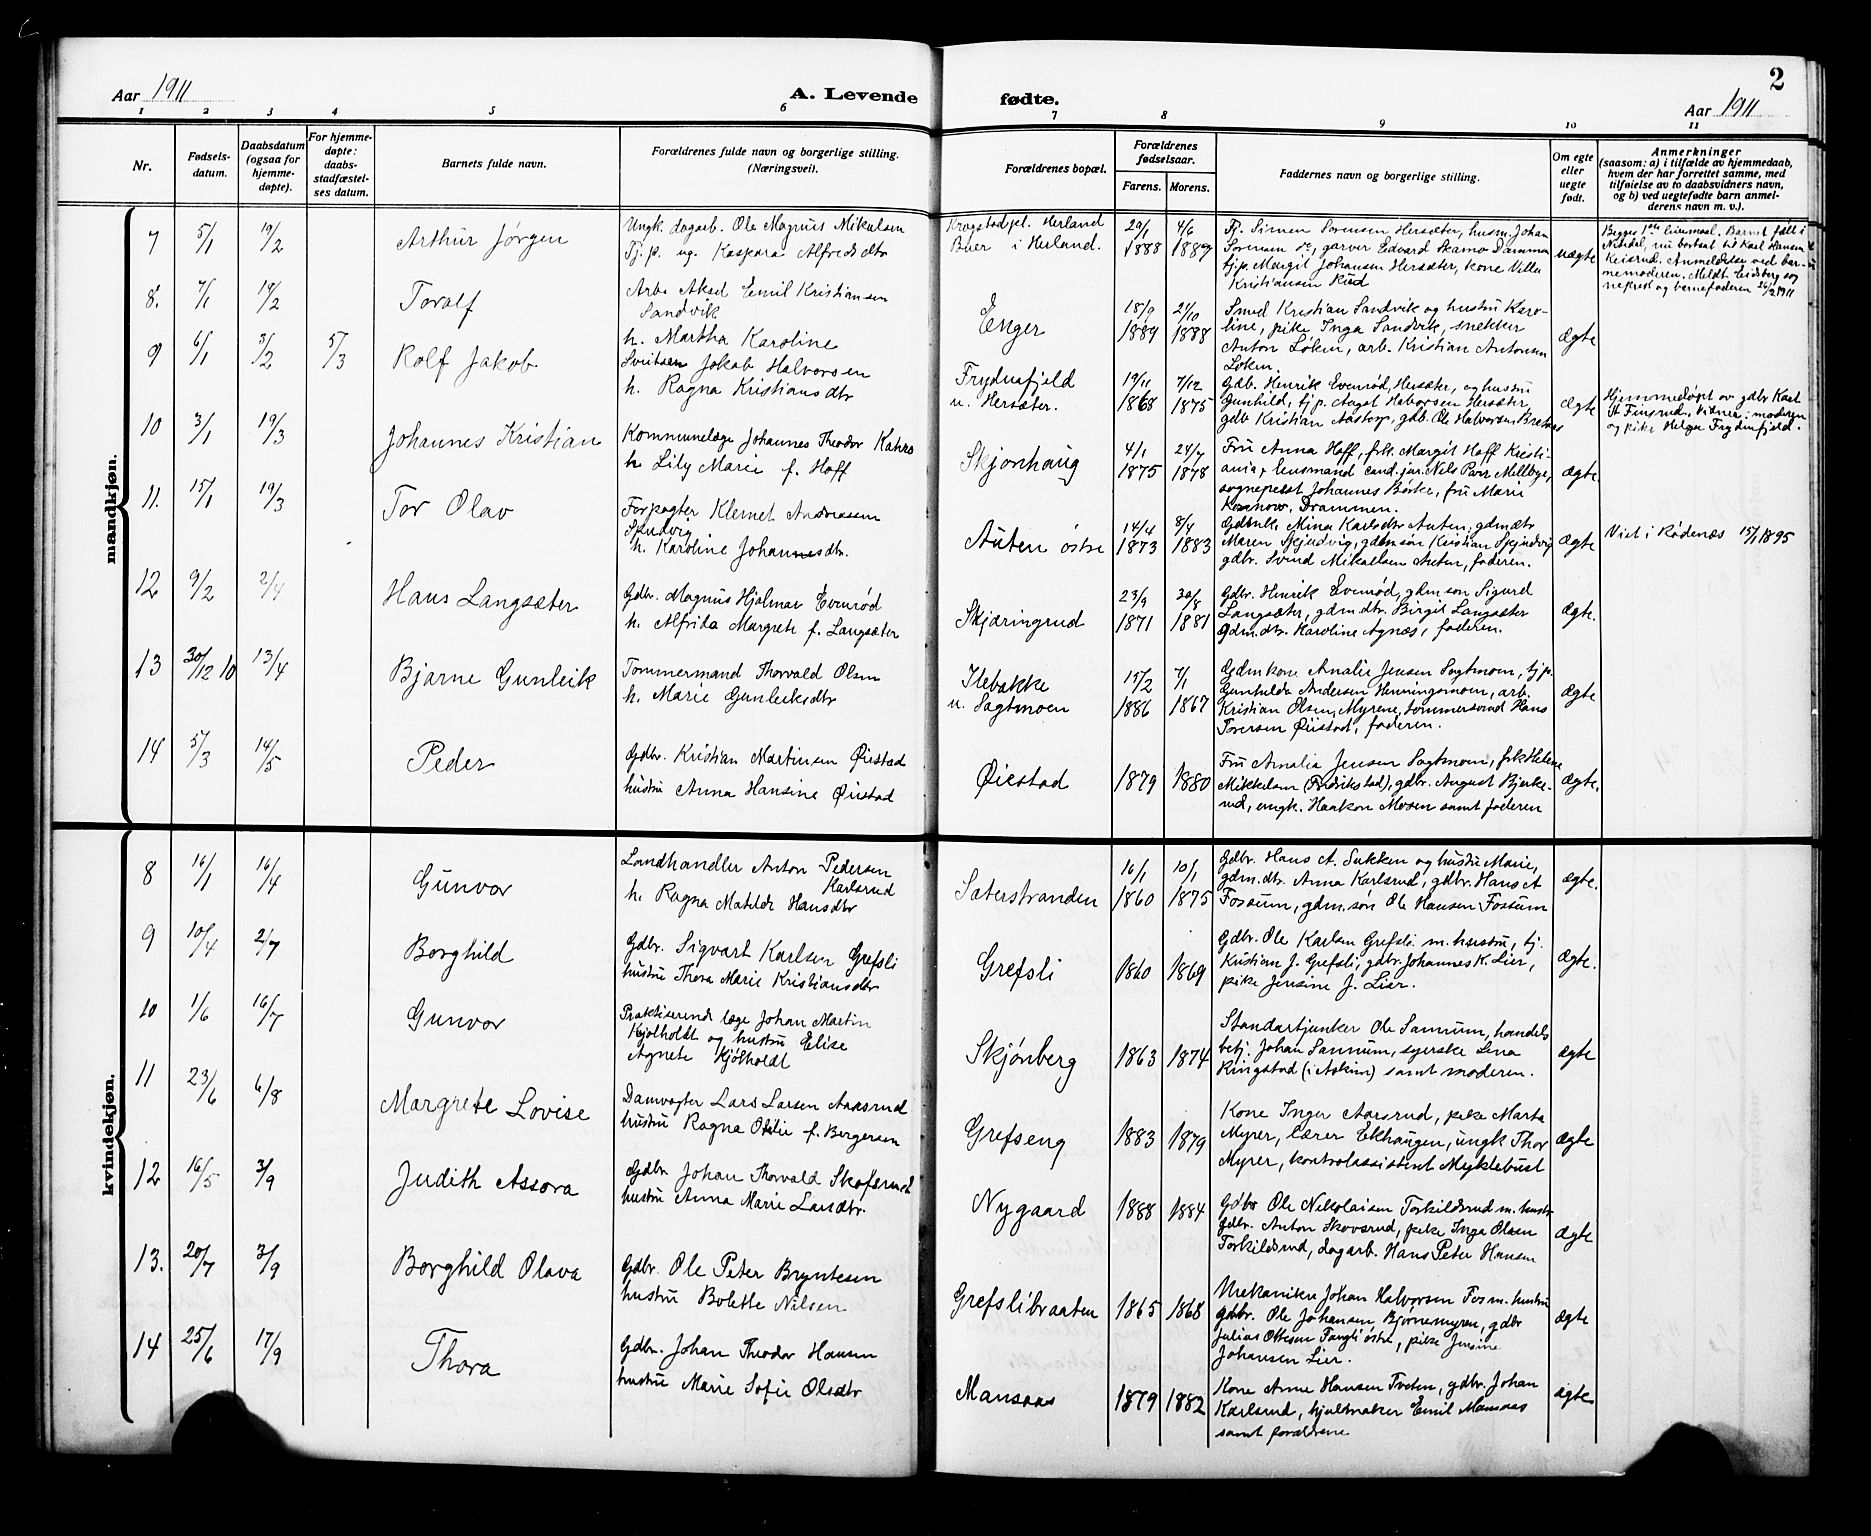 Aar 1911
A. Levende
fødte.
Aar 1911
2
1 2 3 4 5 6 7 8 9 10 11
Nr.
Fødsels-
datum.
Daabsdatum
(ogsaa for
hjemme-
døpte).
For hjemme-
døpte:
daabs-
stadfæstel-
ses datum.
Barnets fulde navn.
Forældrenes fulde navn og borgerlige stilling.
(Næringsvei).
Forældrenes bopæl.
Forældrenes
fødselsaar.
Farens. Morens.
Faddernes navn og borgerlige stilling.
Om egte
eller
uegte
født.
Anmerkninger
(saasom: a) i tilfælde av hjemmedaab,
hvem der har forrettet samme, med
tilføielse av to daabsvidners navn,
og b) ved uegtefødte barn anmel-
derens navn m. v.).
mandkjøn.
7 5/1 19/2 Arthur Jørgen
Ungk. dagarb. Ole Magnus Mikalsen
Tj. p. ug. Kaspara Alfredsdtr
Krogstadpl. Herland
Buer i Herland.
29/1 4/6
1888 1889
Tj. Simen Sørensen Hersæter, husm. Johan
Sørensen sc., garver Edvard Skamo Dammen
tj.p. Margit Johansen Hersæter, kone Villa
Kristiansen Rud
uægte
Begges 1ste leiermaal. Barnet født i
Mendal, nu bortsat til Karl Hansen
Keisrud. Anmeldelse ved bar-
nemoderen. Meldt Eidsberg sog
neprest og barnefaderen 26/2 1911
8. 7/1 19/2 Toralf
Arb. Aksel Emil Kristiansen
Sandvik
h. Martha Karoline
Enger
18/9 21/10
1884 1888
Smed Kristian Sandvik og hustru Karo-
line, pike Inga Sandvik, snekker
Anton Løken, arb. Kristian Antonsen
Løken.
Ægte
9 6/1 3/2 5/3 Rolf Jakob
Jakob Halvorsen
h. Ragna Kristiansdtr
Frydnafjeld
u. Hersæter.
19/11 7/12
1868 1875
Gdb. Henrik Evenrød, Hersæter, og hustru
Gunhild, tj.p. Aagot Halvorsen Hersæter
gdb Kristian Aastorp, gdb. Ole Halvorsen
Ægte
Hjemmedøpt av gdbr Karl
A Finsrud. Vidner: moderen
og pike Helga Frydnfjeld.
10 3/1 19/3 Johannes Kristian
Kommunelæge Johannes Theodor Kahrs
h. Lily Marie f. Hoff
Skjønhaug
4/1 24/7
1875 1878
Fru Anna Hoff, frk. Margit Hoff Kristi-
ania, lensmand cand. jur. Nils Parr Mellbye,
sogneprest Johannes Børke, fru Marie
Drammen.
Ægte.
11. 15/1 19/3 Tor Olav
Forpagter Klemet Andreassen
h. Karoline Johannesdtr.
Auten østre
14/4 8/4
1873 1883
Mina Karlsdtr Auten, gdmdtr
Maren Skjudvig, gdm.søn Kristian Skjudvig
gdbr. Svend Mikaelsen Auten, faderen.
ægte
Viet i Rødenæs 15/1 1895
12 9/2 2/4 Hans Langsæter
Gdbr. Magnus Hjalmar Evenrød
h. Alfrida Margrete f. Langsæter
Skjæringrud
23/9 30/8
1871 1881
Gdbr. Henrik Evenrød, gdm.søn Sigurd
Langsæter, gdm.dtr. Birgit Langsæter
Gdm.dtr. Karoline Agnæs, faderen.
Ægte.
13 30/12 10 13/4 Bjarne Gunleik
Tømmermand Thorvald Olsen
h. Marie Gunleiksdtr
Ilebakke
u. Sagtmoen
15/2 7/1
1886 1867
Gdmkone Analie Jensen Sagtmoen, tj.p.
Gunhilde Andersen Henningsmoen, arb.
Kristian Olsen, Myrene, tømmersvend Hans
Toresen Øiestad, faderen.
Ægte
14 5/3 14/5 Peder
Gdbr. Kristian Martinsen Øiestad
hustru Anna Hansine Øiestad
Øiestad
1879 1880
Fru Amalia Jensen Sagtmoen, frk Helene
Mikkelsen (Fredrikstad), gdbr. August Bjerke-
rud, ungk. Haakon Moen samt faderen
Ægte.
kvindekjøn.
8 16/1 16/4 Gunvor
Landhandler Anton Pedersen
Karlsrud
h. Ragna Matilde Hansdtr
Sæterstranden
16/1 10/1
1860 1875
Gdbr. Hans A. Sukken og hustru Marie,
gdm. dtr. Anna Karlsrud, gdbr. Hans A
Fossum, gdm.søn Ole Hansen Fossum
ægte.
9 10/4 2/7 Borghild
Gdbr. Sigvart Karlsen Grefsli
hustru Thora Marie Kristiansdtr
Grefsli
1860 1869
Gdbr. Ole Karlsen Grefsli m. hustru, tj.
Kristian J. Grefsli, gdbr. Johannes K. Lier,
pike Jensine J. Lier.
Ægte.
10 1/6 16/7 Gunvor
Praktiserende læge Johan Martin
Kjølholdt og hustru Elise
Agnete Kjølholdt
Skjønberg
1863 1874
Standartjunker Ole Sannum, handels
betj. Johan Sannum, syerske Lena
Ringstad (i Askim) samt moderen.
ægte
11 23/6 6/8 Margrete Lovise
Damvogter Lars Larsen Aaasrud
hustru Ragna Otilie f. Bergersen
Grefseng
1883 1879
Kone Inger Aarsrud, pike Marta
Myrer, lærer Ekhaugen, ungk Thor
Myrer, kontrolassistent Myklebust
ægte
12 16/5 3/9 Judith Assora
Gdbr Johan Thorvald
hustru Anna Marie Larsdtr.
Nygaard
1888 1884
Gdbr Ole Nikolaisen Torkildsrud m. hustr
gdbr. Anton Skovsrud, pike Inga Olsen
Torkildsrud, dagarb. Hans Peter Hansen
Ægte
13. 20/7 3/9 Borghild Olava
Gdbr. Ole Peter Bryntesen
hustru Bolette Nilsen
Grefslibraaten
1865 1868
Mekaniker Johan Halvorsen Fos m. hustru
gdbr. Ole Johansen Bjørnemyren, gdbr
Julius Ottesen Fangli østre, pike Jensine
Johansen Lier.
ægte
14 25/6 17/9 Thora
Gdbr. Johan Theodor Hansen
hustru Marie Sofie Olsdtr
Mansaas
1879 1882
Kone Anne Hansen Tveten, gdbr. Johan
Karlsrud, hjulmaker Emil Mansaas
samt forældrene
ægte